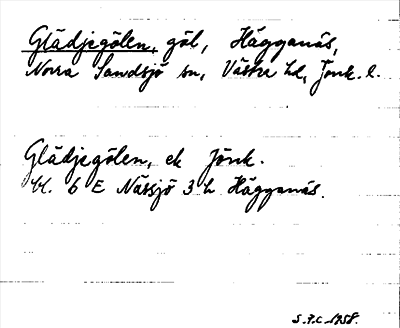 Glädjegölen, göl, Hägganäs,
Norra Sandsjö sn, Västra hd, Jönk. l.
Glädjegölen, ek Jönk.
bl. 6 E Nässjö 3 h Hägganäs.
S.F.C. 1958.